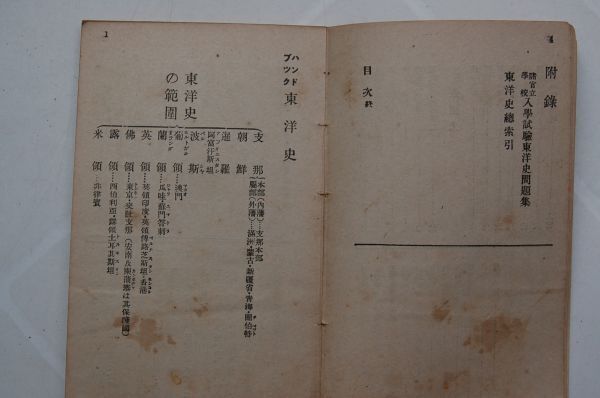 4
附錄
諸官立
學校
入學試驗東洋史問題集
東洋史總索引
目次終
1
ハンド
ブック
東洋史
東洋史
の範圍
支那
本部(内藩)…支那本部
屬部(外藩)…滿洲・蒙古・新疆省・靑海・圖伯特
朝鮮
暹羅
阿富汗斯坦
波斯
葡領…澳門
蘭領…瓜哇蘇門答剌
英領…英領印度・英領俾路芝斯坦・香港
佛領…東京・交趾支那(安南及柬蒲寨は其保護國)
露領…西伯利亞・露領土耳其斯坦
米領…非律賓